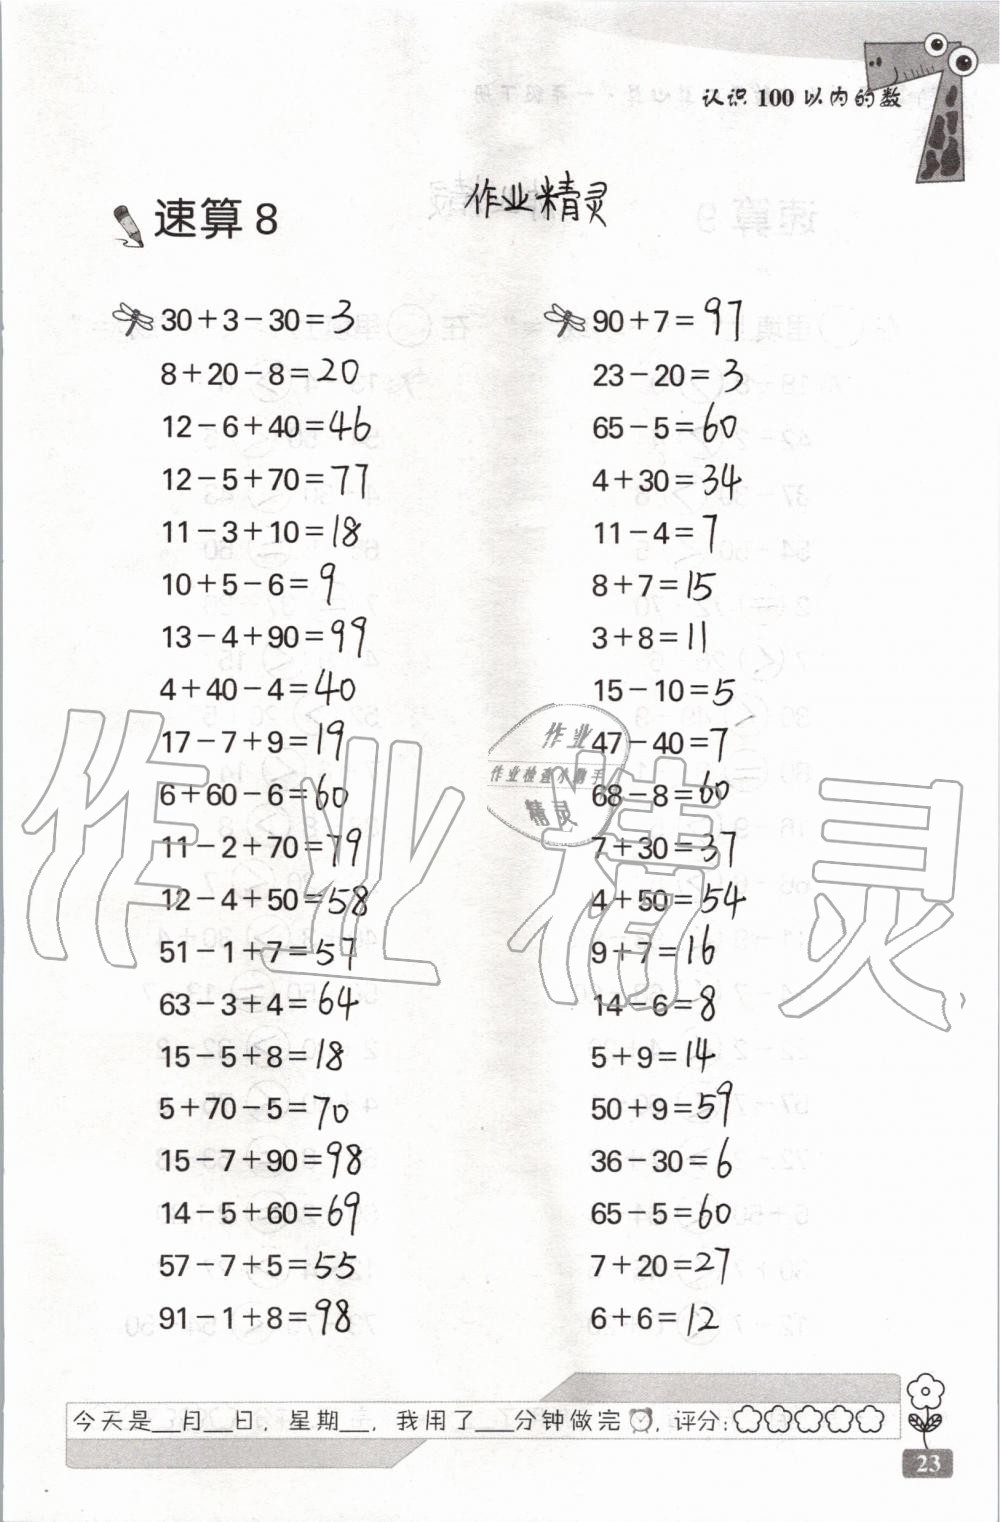 认识100以内的数
作业精灵
速算8
30+3-30=3
8+20-8=20
12-6+40=46
12-5+70=77
11-3+10=18
10+5-6=9
13-4+90=99
4+40-4=40
17-7+9=19
6+60-6=60
11-2+70=79
12-4+50=58
51-1+7=57
63-3+4=64
15-5+8=18
5+70-5=70
15-7+90=98
14-5+60=69
57-7+5=55
91-1+8=98
90+7=97
23-20=3
65-5=60
4+30=34
11-4=7
8+7=15
3+8=11
15-10=5
47-40=7
68-8=60
7+30=37
4+50=54
9+7=16
14-6=8
5+9=14
50+9=59
36-30=6
65-5=60
7+20=27
6+6=12
作业
作业检查小助手
精灵
作业精灵
今天是__月__日，星期__，我用了___分钟做完，评分：
23